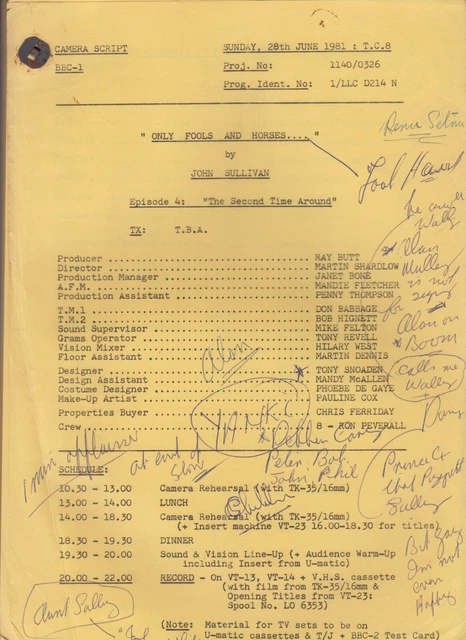 CAMERA SCRIPT
SUNDAY, 28th JUNE 1981 : T.C.8
BBC-1
Proj. No: 1140/0326
Prog. Ident. No: 1/LLC D214 N
" ONLY FOOLS AND HORSES.... "
by
JOHN SULLIVAN
Episode 4: "The Second Time Around"
TX: T.B.A.
Producer ........ RAY BUTT
Director ........ MARTIN SHARDLOW
Production Manager ........ JANET BONE
A.F.M. ........ MANDIE FLETCHER
Production Assistant ........ PENNY THOMPSON
T.M.1 ........ DON BABBAGE
T.M.2 ........ BOB HIGNETT
Sound Supervisor ........ MIKE FELTON
Grams Operator ........ TONY REVELL
Vision Mixer ........ HILARY WEST
Floor Assistant ........ MARTIN DENNIS
Designer ........ TONY SNOADEN
Design Assistant ........ MANDY McALLEN
Costume Designer ........ PHOEBE DE GAYE
Make-Up Artist ........ PAULINE COX
Properties Buyer ........ CHRIS FERRIDAY
Crew ........ 8 - RON PEVERALL
is not
for
Alan on
Boom
Alan
calls me
Wally
YANKE
1 min applause
at end of
Show
Peter Bob
John Phil
Sally
SCHEDULE:
10.30 - 13.00 Camera Rehearsal (with TK-35/16mm)
13.00 - 14.00 LUNCH
14.00 - 18.30 Camera Rehearsal (with TK-35/16mm)
(+ Insert machine VT-23 16.00-18.30 for titles)
18.30 - 19.30 DINNER
19.30 - 20.00 Sound & Vision Line-Up (+ Audience Warm-Up
including Insert from U-matic)
20.00 - 22.00 RECORD - On VT-13, VT-14 + V.H.S. cassette
(with film from TK-35/16mm &
Opening Titles from VT-23:
Spool No. LO 6353)
I'm not
even
Happy
Aunt Sally
(Note: Material for TV sets to be on
U-matic cassettes & T/J + BBC-2 Test Card)